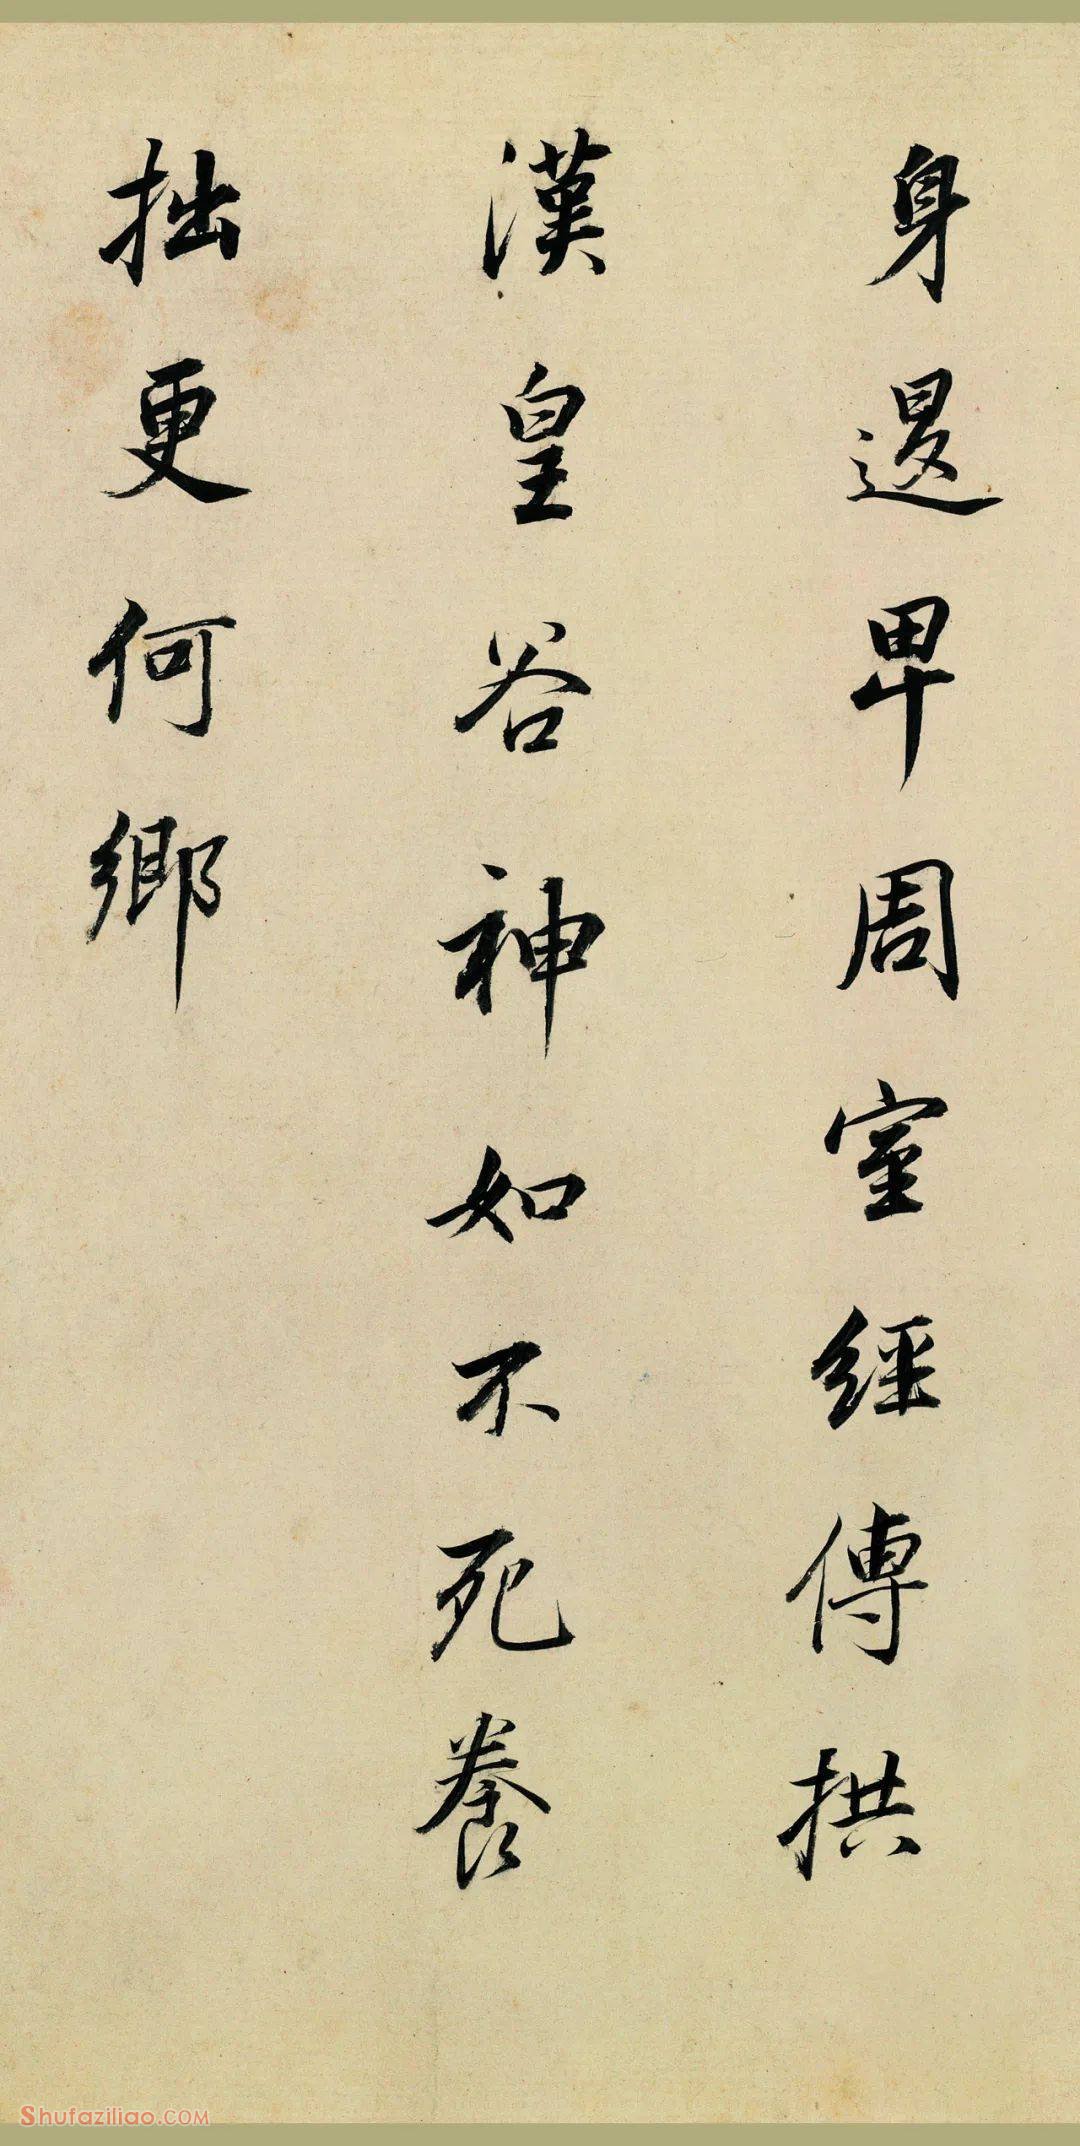 身退卑周室經傳拱
漢皇谷神如不死養
拙更何鄉
Shufaziliao.COM